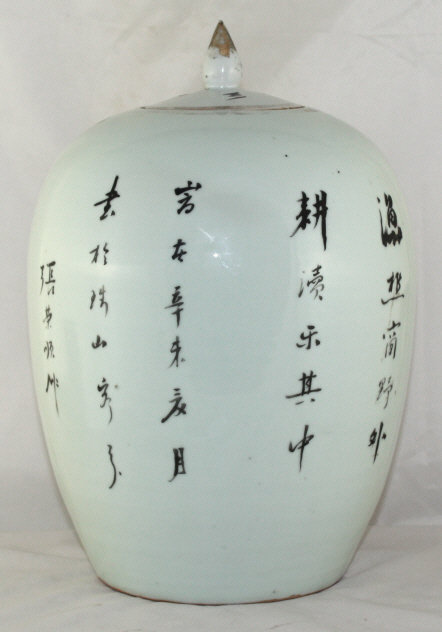 漁樵窗野外
耕讀乐其中
旹在辛未亥月
書於珠山客
張榮順作